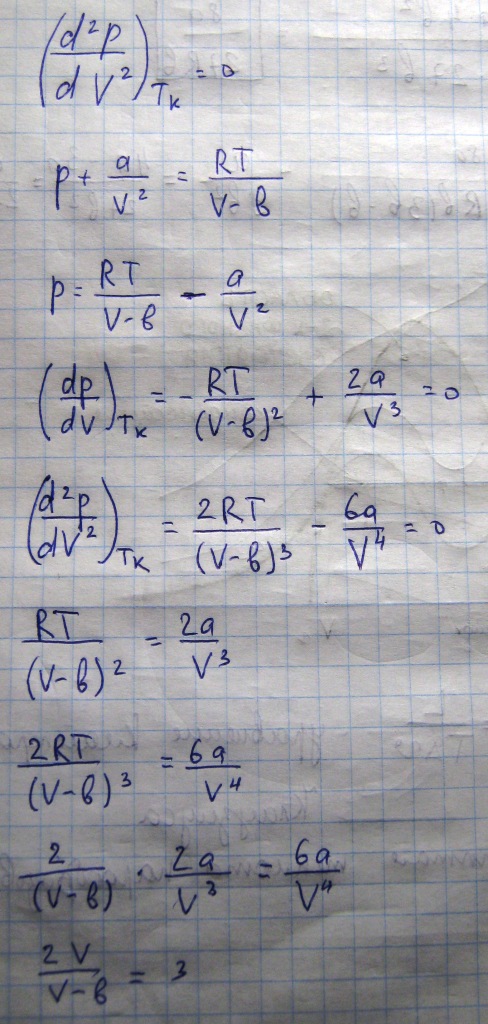 (d²p/dV²)Tк = 0
p + a/V² = RT/(V-в)
p = RT/(V-в) - a/V²
(dp/dV)Tк = -RT/(V-в)² + 2a/V³ = 0
(d²p/dV²)Tк = 2RT/(V-в)³ - 6a/V⁴ = 0
RT/(V-в)² = 2a/V³
2RT/(V-в)³ = 6a/V⁴
2/(V-в) · 2a/V³ = 6a/V⁴
2V/(V-в) = 3